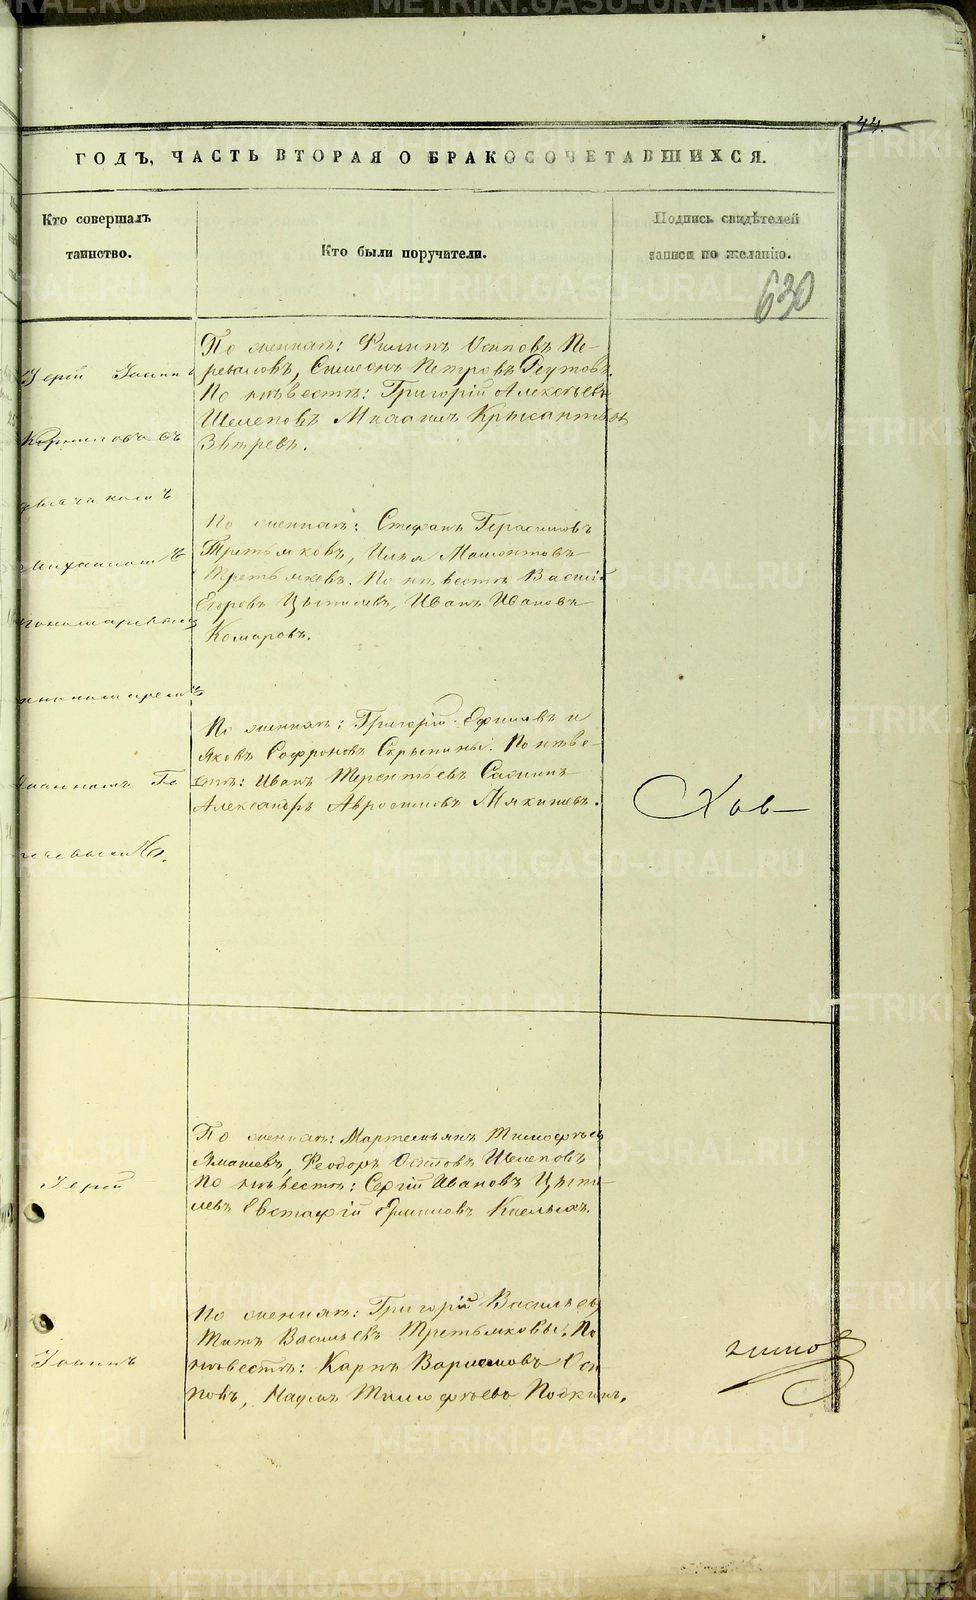 44.
ГОДЪ, ЧАСТЬ ВТОРАЯ О БРАКОСОЧЕТАВШИХСЯ.
Кто совершалъ
таинство.
Кто были поручители.
Подпись свидѣтелей
записи по желанію.
630
Іерей Іоаннъ
Корниловъ съ
діакономъ
Михаиломъ
пономаремъ
Іоанномъ
По женихѣ: Филипъ Осиповъ Пе-
реваловъ, Симеонъ Петровъ Реутовъ.
По невестѣ: Григорій Алексѣевъ
Шелеповъ Михаилъ Крысантовъ
Звѣревъ.
По женихѣ: Стефанъ Герасимовъ
Третьяковъ, Илья Мамонтовъ
Третьяковъ. По невестѣ Василій
Егоровъ Цыпилевъ, Иванъ Ивановъ
Комаровъ.
По женихѣ: Григорій Ефимовъ и
Яковъ Софроновъ Скрыпины. По неве-
стѣ: Иванъ Терентьевъ Санинъ
Александръ Авросимовъ Мякишевъ.
Хов
По женихѣ: Мартемьянъ Тимофѣевъ
Ямашевъ, Феодоръ Осиповъ Шелеповъ
По невестѣ: Сергій Ивановъ Цыпи-
левъ Евстафій Ермиловъ
Іерей
По женихѣ: Григорій Васильевъ
Титъ Васильевъ Третьяковы. По
невестѣ: Карпъ Варламовъ Оси
повъ, Наумъ Тимофѣевъ Подкинъ.
Іоаннъ
METRIKI.GASO-URAL.RU